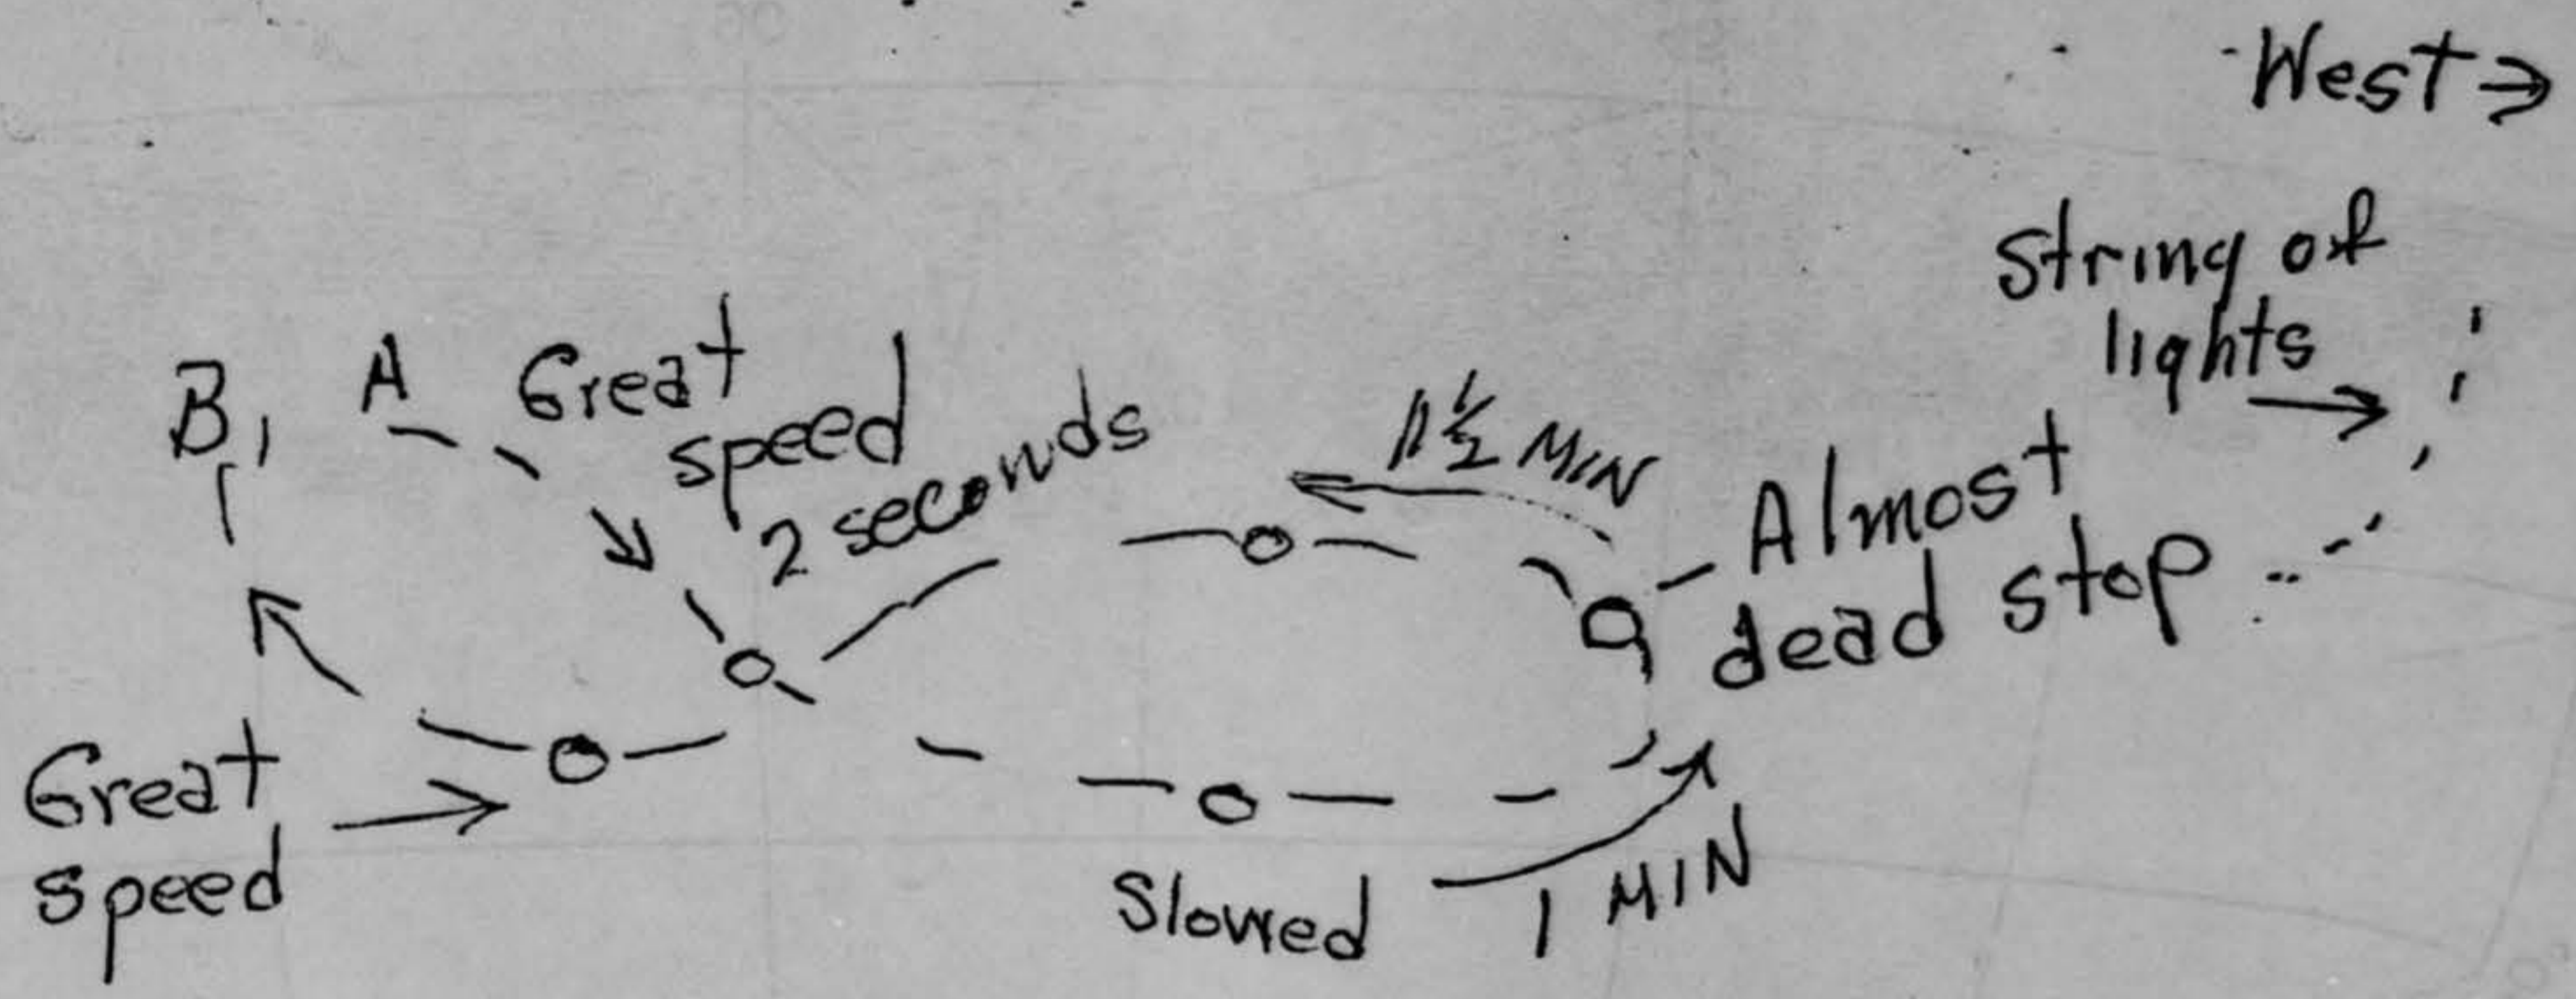 West →
String of
lights
B A Great
speed
2 seconds
1½ MIN
Almost
dead stop
Great
speed
Slowed
1 MIN